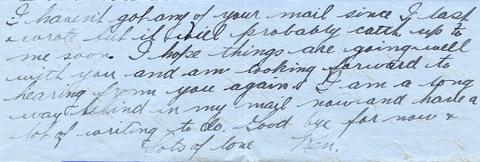 I haven't got any of your mail since I last
wrote but it will probably catch up to
me soon. I hope things are going well
with you and am looking forward to
hearing from you again. I am a long
way behind in my mail now and have a
lot of writing to do. Good bye for now &
Lots of love Ken.